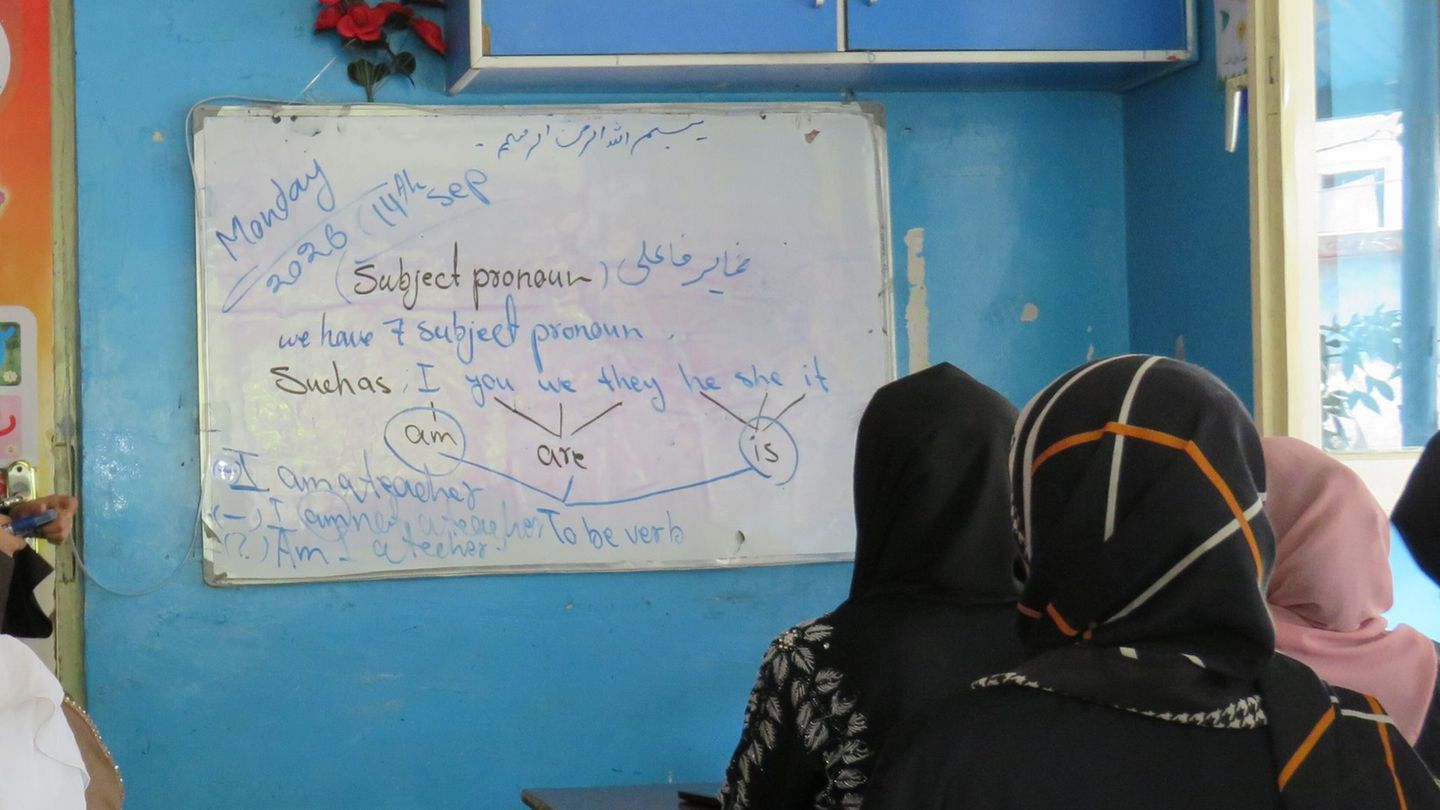 بسم الله الرحمن الرحیم
Monday
2026 14th sep
(Subject pronoun) ضمایر فاعلی
we have 7 subject pronoun.
Such as, I you we they he she it
am are is
I am a teacher
(-) I am not a teacher To be verb
(?) Am I a techer